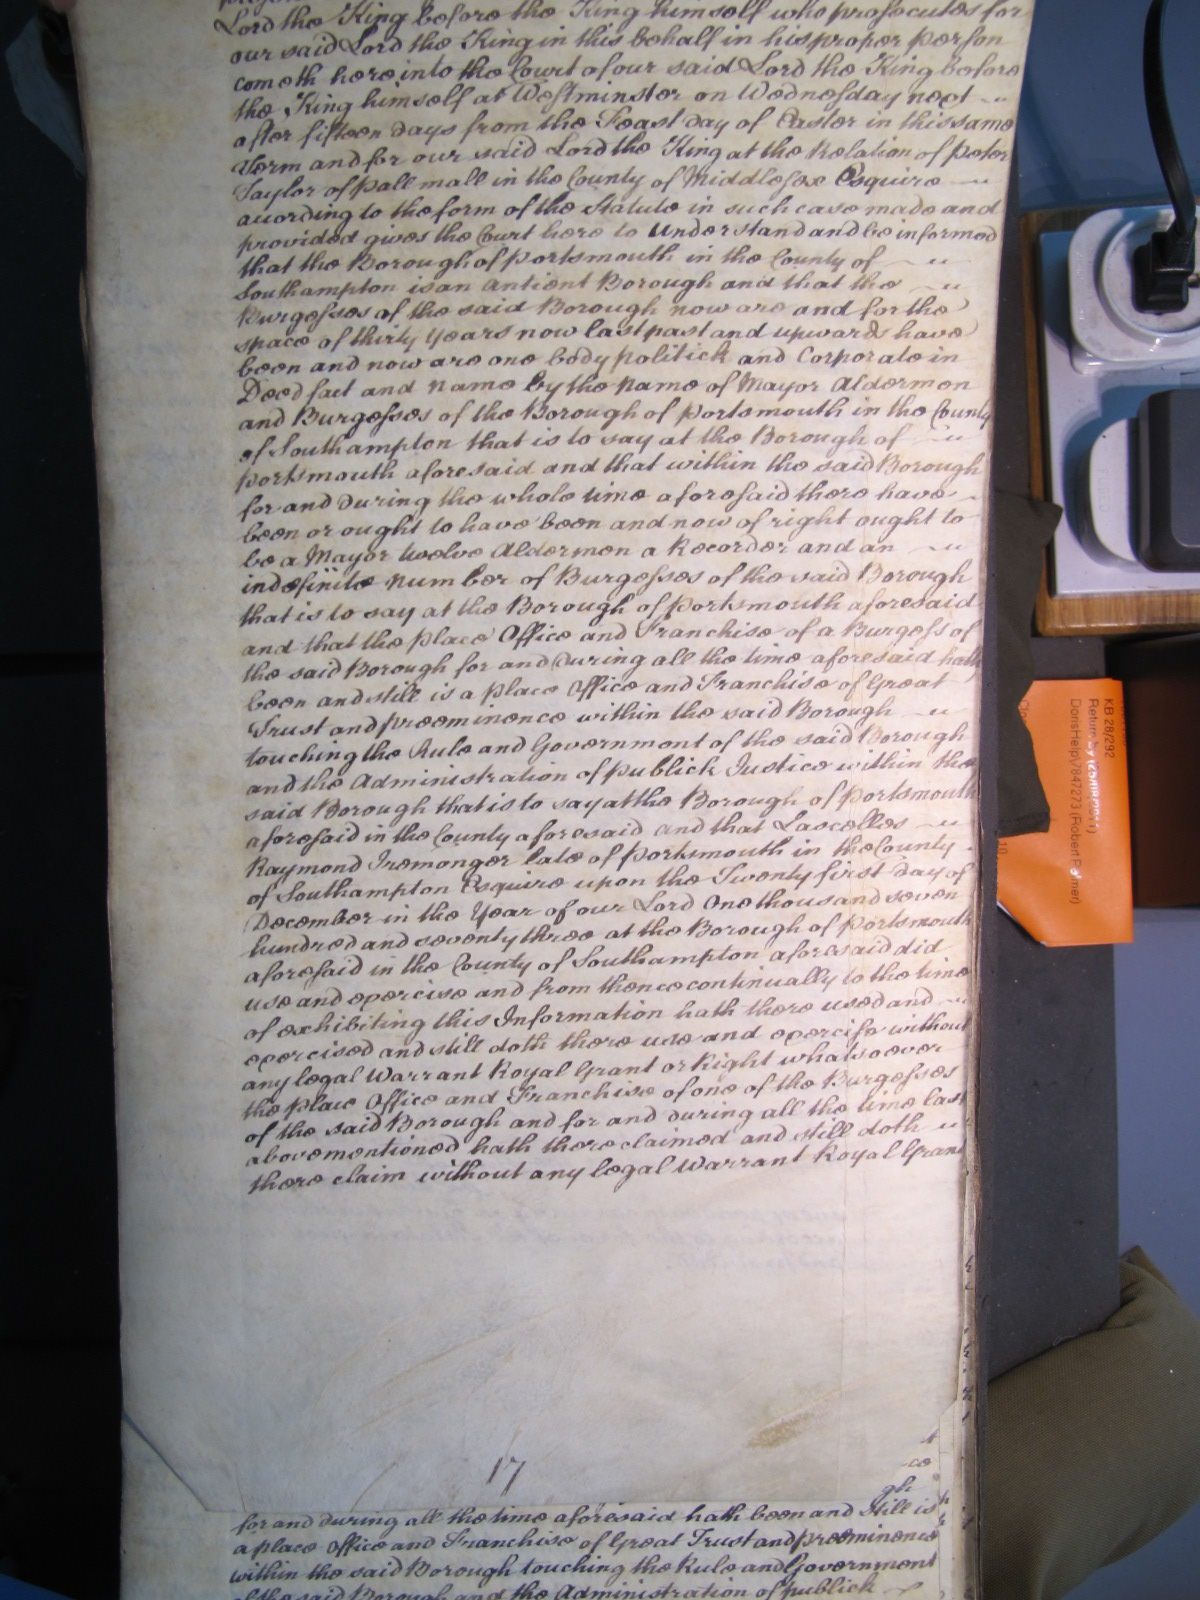 Lord the King before the King himself who prosecutes for
our said Lord the King in this behalf in his proper person
cometh here into the Court of our said Lord the King before
the King himself at Westminster on Wednesday next
after fifteen days from the Feast day of Easter in this same
Term and for our said Lord the King at the Relation of Peter
Taylor of Pall mall in the County of Middlesex Esquire
according to the form of the Statute in such case made and
provided gives the Court here to understand and be informed
that the Borough of Portsmouth in the County of
Southampton is an Antient Borough and that the
Burgesses of the said Borough now are and for the
space of thirty years now last past and upwards have
been and now are one body politick and Corporate in
Deed fact and name by the name of Mayor Aldermen
and Burgesses of the Borough of Portsmouth in the County
of Southampton that is to say at the Borough of
Portsmouth aforesaid and that within the said Borough
for and during the whole time aforesaid there have
been or ought to have been and now of right ought to
be a Mayor twelve Aldermen a Recorder and an
indefinite number of Burgesses of the said Borough
that is to say at the Borough of Portsmouth aforesaid
and that the place Office and Franchise of a Burgess of
the said Borough for and during all the time aforesaid hath
been and still is a place Office and Franchise of Great
Trust and preeminence within the said Borough
touching the Rule and Government of the said Borough
and the Administration of publick Justice within the
said Borough that is to say at the Borough of Portsmouth
aforesaid in the County aforesaid and that Lascelles
Raymond Iremonger late of Portsmouth in the County
of Southampton Esquire upon the Twenty first day of
December in the Year of our Lord One thousand seven
hundred and seventy three at the Borough of Portsmouth
aforesaid in the County of Southampton aforesaid did
use and exercise and from thence continually to the time
of exhibiting this Information hath there used and
exercised and still doth there use and exercise without
any legal Warrant Royal Grant or Right whatsoever
the place Office and Franchise of one of the Burgesses
of the said Borough and for and during all the time last
abovementioned hath there claimed and still doth
there claim without any legal Warrant Royal Grant
17
for and during all the time aforesaid hath been and still is
a place Office and Franchise of Great Trust and preeminence
within the said Borough touching the Rule and Government
of the said Borough and the Administration of publick
KB 28/292
Return by
(Robert Palmer)